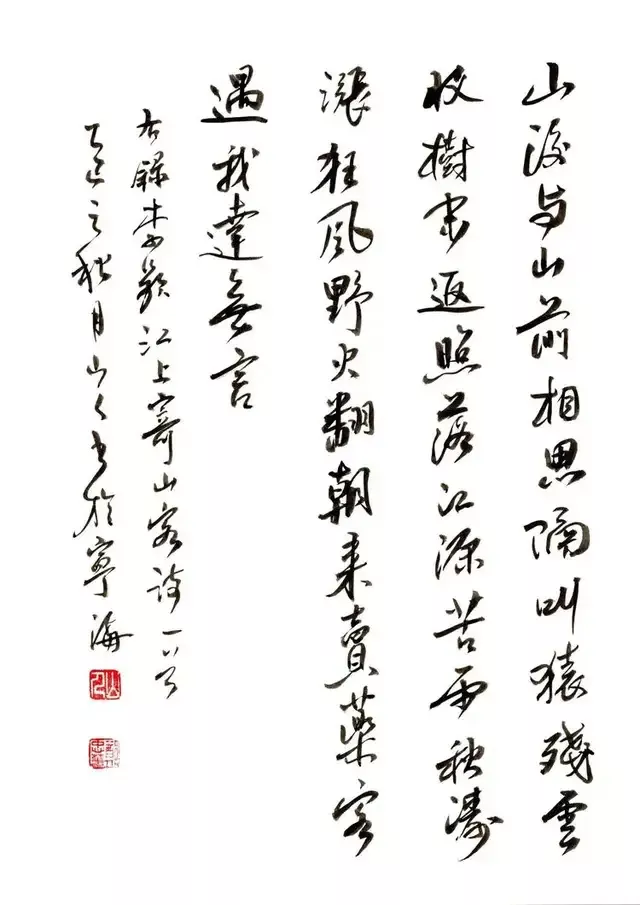 山後与山前相思隔叫猿殘雲
收樹末返照落江源苦雨秋濤
漲狂風野火翻朝来賣藥客
遇我達無言
右錄李江上寄山客詩一首
乙之秋月山人书於寧海